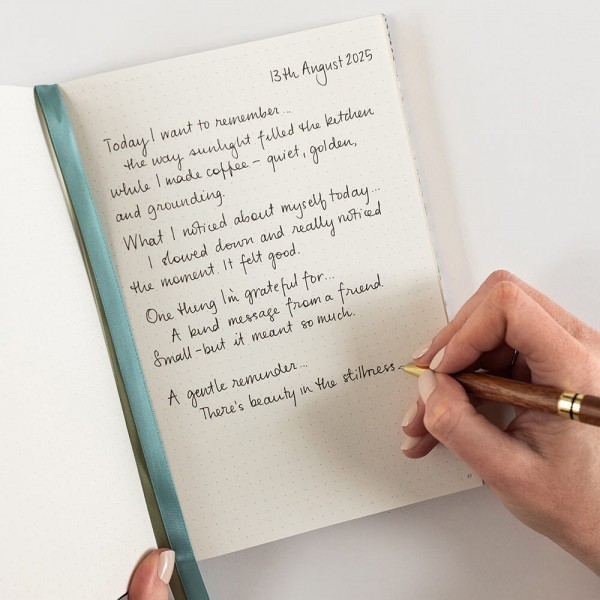 13th August 2025
Today I want to remember...
the way sunlight filled the kitchen
while I made coffee – quiet, golden,
and grounding.
What I noticed about myself today...
I slowed down and really noticed
the moment. It felt good.
One thing I'm grateful for...
A kind message from a friend.
Small – but it meant so much.
A gentle reminder...
There's beauty in the stillness.